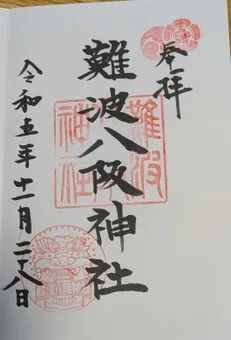 奉拝
難波八阪神社
令和五年十一月二十八日
難波
神社